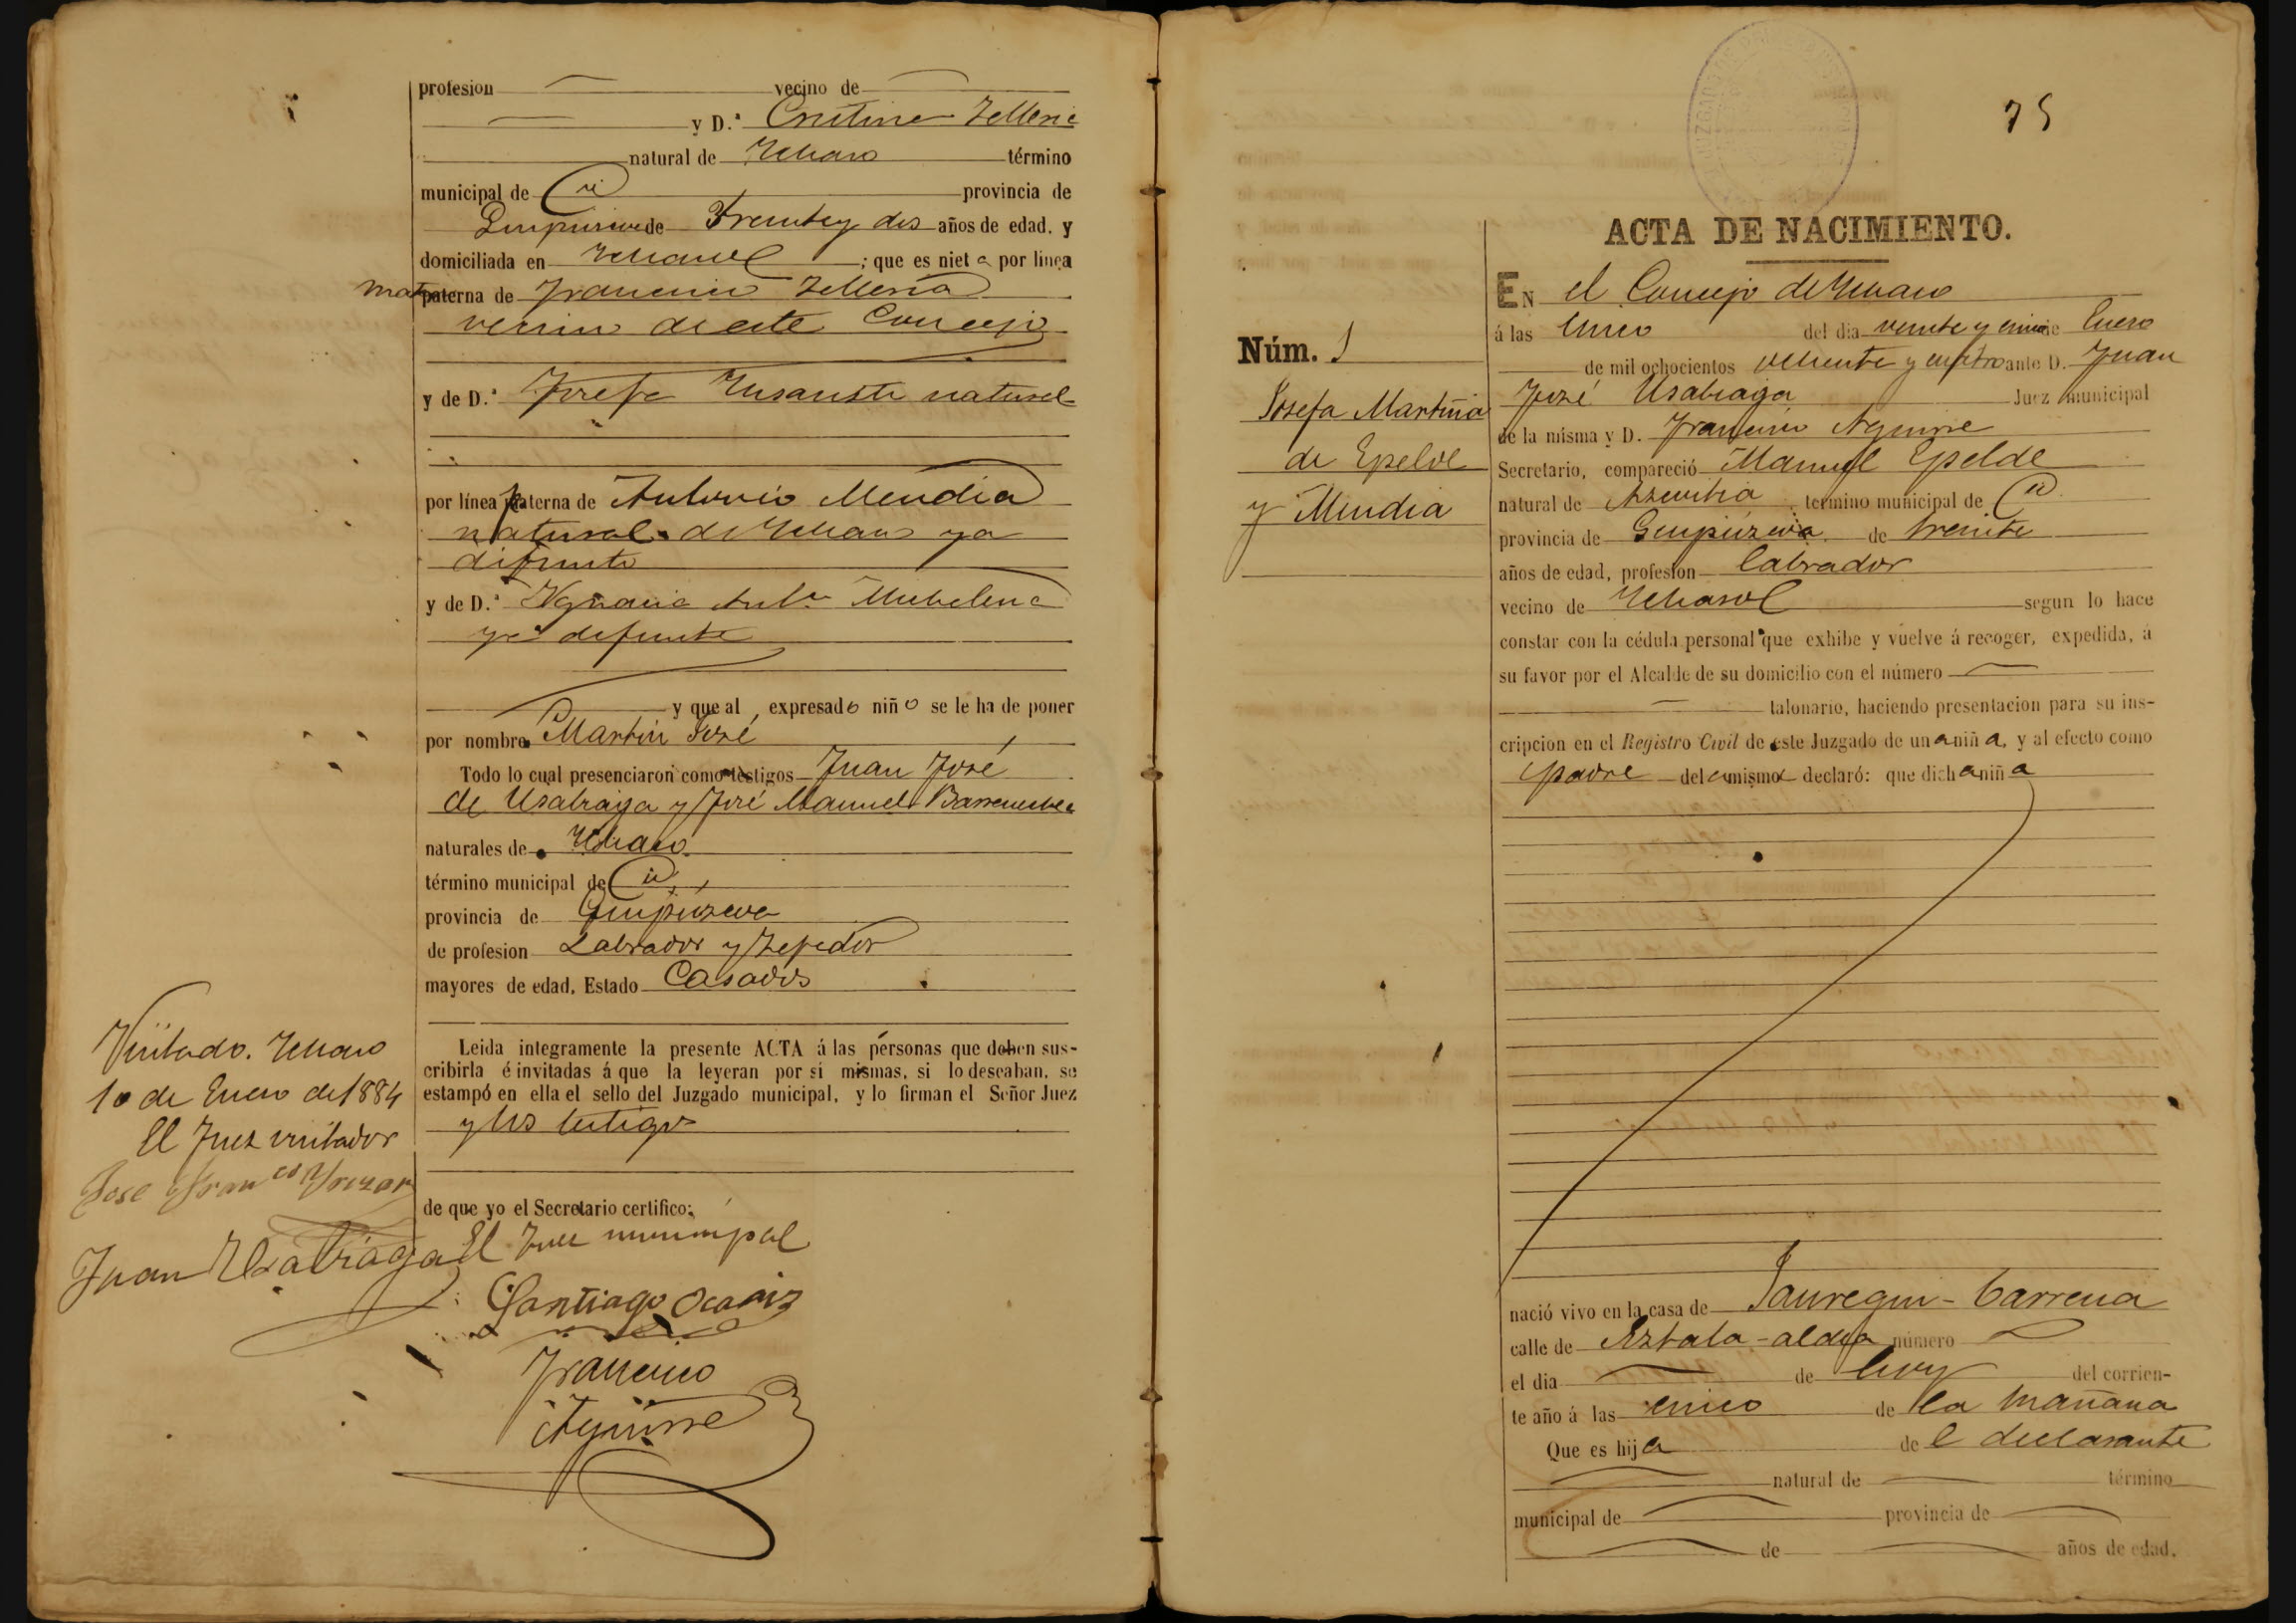 profesion vecino de
y D.ª Cristina Telleria
natural de Ichaso término
municipal de id provincia de
Guipuzcoa de Treinta y dos años de edad, y
domiciliada en Ichaso ; que es niet o por línea
materna de Francisco Telleria
vecino de este Concejo
y de D.ª Josefa Insausti natural
por línea paterna de Antonio Mendia
natural de Ichaso ya
difunto
y de D.ª Ygnacia Ant.ª Michelena
ya difunta
y que al expresado niño se le ha de poner
por nombre Martin José
Todo lo cual presenciaron como testigos Juan José
de Usabiaga y José Manuel Barrenechea
naturales de Ichaso
término municipal de id
provincia de Guipúzcoa
de profesion Labrador y Tejedor
mayores de edad, Estado Casados
Leida integramente la presente ACTA á las personas que deben sus-
cribirla é invitadas á que la leyeran por si mismas, si lo deseaban, se
estampó en ella el sello del Juzgado municipal, y lo firman el Señor Juez
y los testigos
de que yo el Secretario certifico:
El Juez municipal
Santiago Ocariz
Francisco
Aguirre
Visitado. Ichaso
10 de Enero de 1884
El Juez visitador
Jose Fran.co Yrizar
Juan Usabiaga
75
ACTA DE NACIMIENTO.
EN el Concejo de Ichaso
á las cinco del dia veinte y cinco de Enero
de mil ochocientos ochenta y cuatro ante D. Juan
José Usabiaga Juez municipal
de la misma y D. Francisco Aguirre
Secretario, compareció Manuel Epelde
natural de Azcoitia término municipal de id
provincia de Guipúzcoa de treinta
años de edad, profesion labrador
vecino de Ichaso segun lo hace
constar con la cédula personal que exhibe y vuelve á recoger, expedida, á
su favor por el Alcalde de su domicilio con el número
talonario, haciendo presentacion para su ins-
cripcion en el Registro Civil de este Juzgado de una niña, y al efecto como
padre del mismo declaró: que dicha niña
Núm. 1
Josefa Martina
de Epelde
y Mendia
nació vivo en la casa de Jauregui-barrena
calle de Arbala-aldea número
el dia de hoy del corrien-
te año á las cinco de la mañana
Que es hija de l declarante
natural de término
municipal de provincia de
de años de edad,